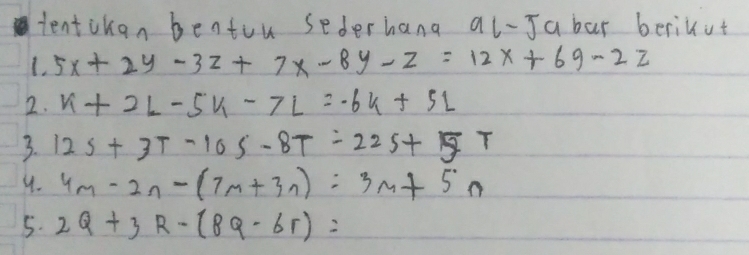 tentukan bentuk sederhana al-Jabar berikut
1. 5x + 2y - 3z + 7x - 8y - z = 12x + 6y - 2z
2. K + 2L - 5K - 7L = -6K + 5L
3. 12s + 3T - 10s - 8T = 22s + 5 T
4. 4m - 2n - (7m + 3n) = 3m + 5n
5. 2Q + 3R - (8Q - 6r) =